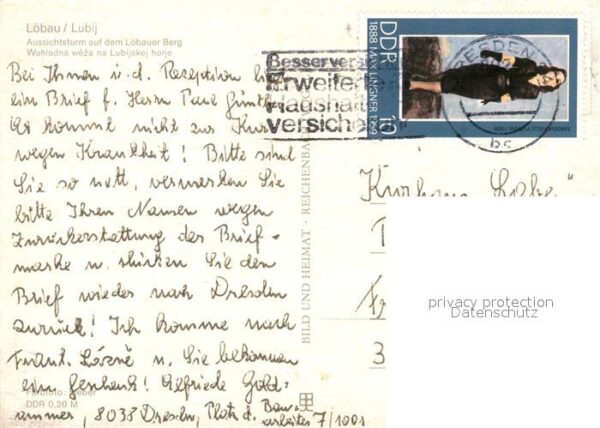 Löbau / Lubij
Aussichtsturm auf dem Löbauer Berg
Wuhladna wěža na Lubijskej horje
Bei Ihnen i.d. Rezeption
ein Brief f. Herrn Paul
Es kommt nicht zur Kur
wegen Krankheit! Bitte sind
Sie so nett, vermerken Sie
bitte Ihren Namen wegen
Zurückerstattung der Brief-
marke u. schicken Sie den
Brief wieder nach Dresden
zurück! Ich komme nach
Frant. Lázně u. Sie bekommen
ein Geschenk! Elfriede Gold-
ammer, 8038 Dresdn, Platz d. Bau-
arbeiter 7/1001
Farbfoto: Weber
DDR 0,20 M
BILD UND HEIMAT · REICHENBA
Besser vers
Erweiter
Haushal
versiche
DDR
1888 MAX LINGNER 1959
10
DRESDEN
bc
Kurhaus
privacy protection
Datenschutz